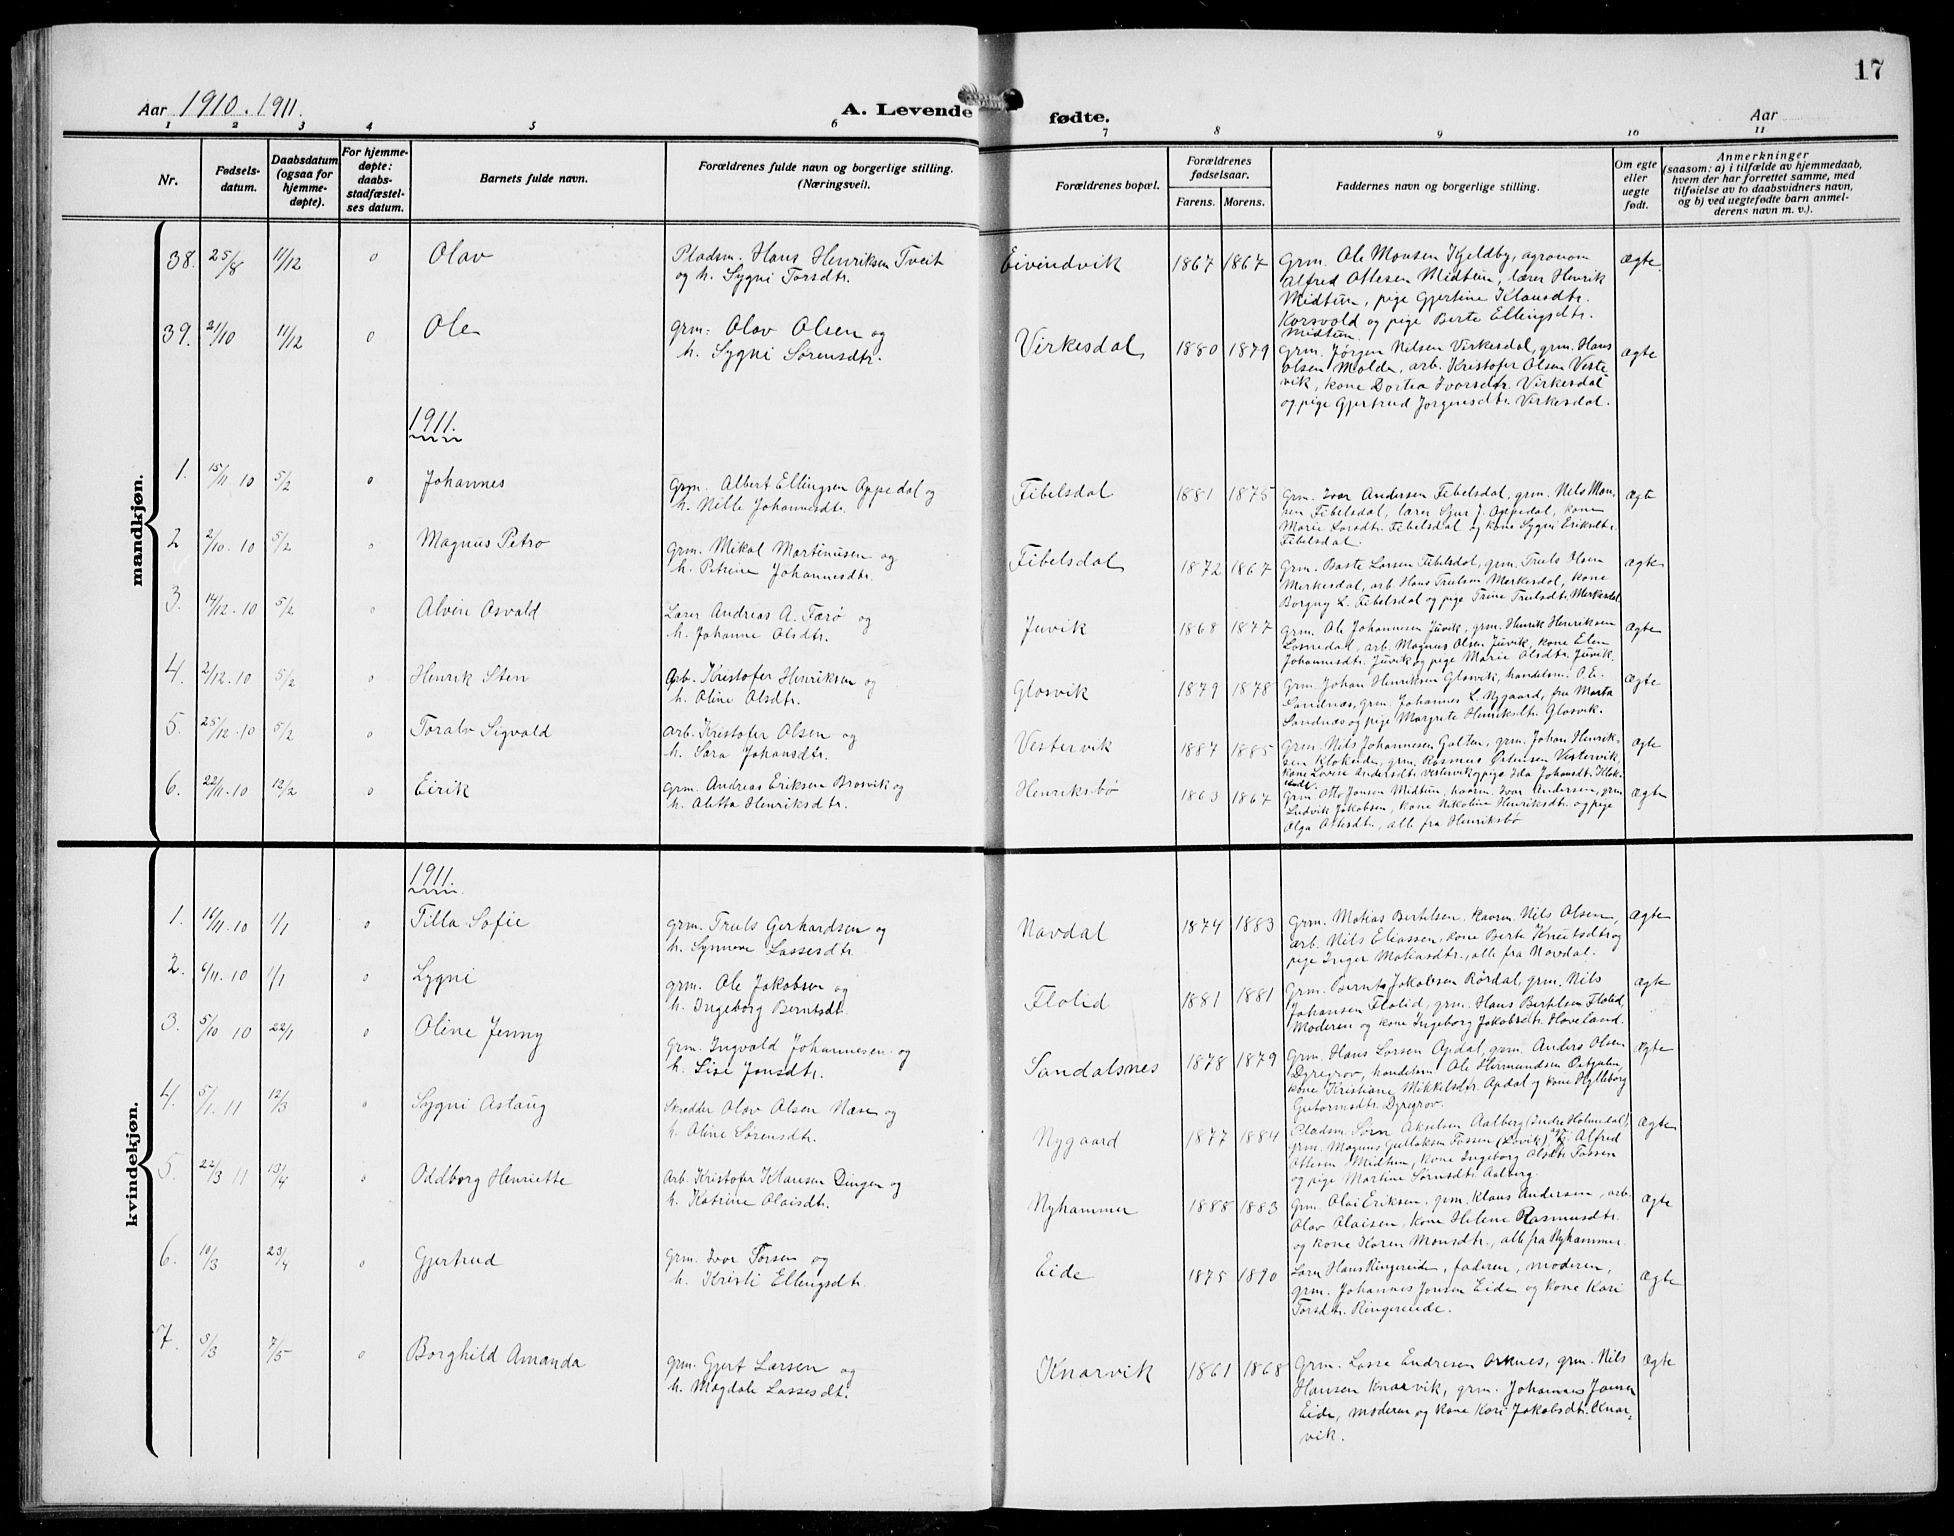 17
Aar 1910. 1911.
A. Levende fødte.
Aar
1 2 3 4 5 6 7 8 9 10 11
Nr.
Fødsels-
datum.
Daabsdatum
(ogsaa for
hjemme-
døpte).
For hjemme-
døpte:
daabs-
stadfæstel-
ses datum.
Barnets fulde navn.
Forældrenes fulde navn og borgerlige stilling.
(Næringsvei).
Forældrenes bopæl.
Forældrenes
fødselsaar.
Farens. Morens.
Faddernes navn og borgerlige stilling.
Om egte
eller
uegte
født.
Anmerkninger
(saasom: a) i tilfælde av hjemmedaab,
hvem der har forrettet samme, med
tilføielse av to daabsvidners navn,
og b) ved uegtefødte barn anmel-
derens navn m. v.).
mandkjøn.
38. 25/8 11/12 0 Olav
Pladsm. Hans Henriksen Tveit
og h. Sygni Torsdtr.
Eivindvik 1867 1867
Grm. Ole Monsen Kjeldby, agronom
Alfred Ottesen Midtun, lærer Henrik
Midtun, pige Gjertine Klausdtr.
Korsvold og pige Berte Ellingsdtr.
Midtun.
Ægte.
39. 21/10 11/12 0 Ole
grm. Olav Olsen og
h. Sygni Sørensdtr.
Virkesdal 1880 1879
Grm. Jørgen Nilsen Virkesdal, grm. Hans
Olsen Molde, arb. Kristofer Olsen Veste
vik, kone Dortea Ivarsdtr. Virkesdal
og pige Gjertrud Jørgensdtr. Virkesdal.
Ægte
1911.
1. 15/11. 10 5/2 0 Johannes
Grm. Albert Ellingsen Appedal og
h. Nille Johannesdtr.
Tibelsdal 1881 1875
Grm. Ivar Andersen Tibelsdal, grm. Nils Mon-
sen Tibelsdal, lærer Sjur J. Appedal, kone
Marie Larsdtr. Tibelsdal og kone Sygni Eriksdtr.
Tibelsdal.
Ægte
2 2/10. 10 5/2 0 Magnus Petro
grm. Mikal Martinusen og
h. Petrine Johannesdtr.
Tibelsdal 1872 1867
Grm. Baste Larsen Tibelsdal, grm. Truls Olsen
Merkesdal, arb. Hans Trulsen Merkesdal, kone
Borgny L. Tibelsdal og pige Trine Trulsdtr. Merkesdal
Ægte
3. 14/12. 10 5/2 0 Alvin Asvald
Lærer Andreas A. Færø og
h. Johanne Olsdtr.
Juvik 1868 1877
Grm. Ole Johannesen Juvik, grm. Henrik Henriksen
Losnedal, arb. Magnus Olsen Juvik, kone Elen
Johannesdtr. Juvik og pige Marie Olsdtr. Juvik.
Ægte
4. 2/12. 10 5/2 0 Henrik Sten
Arb. Kristofer Henriksen og
h. Oline Olsdtr.
Glosvik 1879 1878
Grm. Johan Henriksen Glosvik, handelsm. O. E.
Sandnæs, grm. Johannes L. Nygaard, fru Marta
Sandnæs og pige Margrete Henriksdtr. Glosvik.
Ægte
5. 25/12. 10 5/2 0 Toralv Sigvald
arb. Kristofer Olsen og
h. Sara Johansdtr.
Vestervik 1887 1885
Grm. Nils Johannesen Galten, grm. Johan Henrik-
sen Klokeide, grm. Rasmus Ortensen Vestervik,
kone Lovise Andersdtr. Vestervik og pige Ida Johansdtr. Klok-
eide.
Ægte
6. 22/11. 10 12/2 0 Eirik
grm. Andreas Eriksen Brosvik og
h. Aletta Henriksdtr.
Henriksbø 1863 1867
Grm. Otto Jonsen Midtun, haarm. Ivar Andersen, grm
Ludvik Jakobsen, kone Nikoline Henriksdtr. og pige
Olga Ottesdtr., alle fra Henriksbø
Ægte
kvindekjøn.
1911.
1. 16/11. 10 1/1 0 Tilla Sofie
grm. Truls Gerhardsen og
h. Synnøve Lassesdtr.
Navdal 1874 1883
Grm. Matias Bertelsen, kaarm. Nils Olsen,
arb. Nils Eliassen, kone Berte Knutsdtr og
pige Inger Matiasdtr., alle fra Navdal.
Ægte
2. 6/11. 10 1/1 0 Lygni
grm. Ole Jakobsen og
h. Ingeborg Berntsdtr.
Flolid 1881 1881
Grm. Bernt Jakobsen Rørdal, grm. Nils
Johansen Flolid, grm. Hans Bertelsen Flolid,
Moderen og kone Ingeborg Jakobsdtr. Haveland.
Ægte
3. 5/10 10 22/1 0 Oline Jenny
Grm. Ingvald Johannesen og
h. Lisi Jonsdtr.
Sandalsnes 1878 1879
Grm. Hans Larsen Opdal, grm. Anders Olsen
Dyregrov, handelsm. Ole Hermundsen Østgulen,
kone Kristiane Mikkelsdtr. Opdal og kone Hylleborg
Gutormsdtr. Dyregrov.
Ægte
4. 5/1. 11 12/3 0 Sygni Aslaug
Skredder Olav Olsen Næse og
h. Oline Sørensdtr.
Nygaard 1877 1884
Pladsm. Sørn Akselsen Aalberg (Indre Holmedal),
grm. Magnus Gullaksen Fossen (Lavik), agr. Alfred
Ottesen Midtun, kone Ingeborg Olsdtr. Fossen
og pige Martine Sørnsdtr. Aaberg.
Ægte
5. 22/3 11 13/4 0 Oddborg Henriette
Arb. Kristofer Klausen Dingen og
h. Katrine Olaisdtr.
Nyhammer 1888 1883
Grm. Olai Eriksen, grm. Klaus Andersen, arb.
Olav Olaisen, kone Helene Rasmusdtr.
og kone Karen Monsdtr., alle fra Nyhammer.
Ægte
6. 10/3 23/4 0 Gjertrud
Grm. Ivar Torsen og
h. Kristi Ellingsdtr.
Eide 1875 1890
Lærer Hans Ringereide, faderen, moderen,
grm. Johannes Jonsen Eide og kone Kari
Torsdtr. Ringereide.
Ægte
7. 5/3 7/5 0 Borghild Amanda
grm. Gjert Larsen og
h. Magdale Lassesdtr.
Knarvik 1861 1868
Grm. Lasse Endresen Arknes, grm. Nils
Hansen Knarvik, grm. Johannes Jonsen
Eide, moderen og kone Kari Jakobsdtr. Knar-
vik.
Ægte